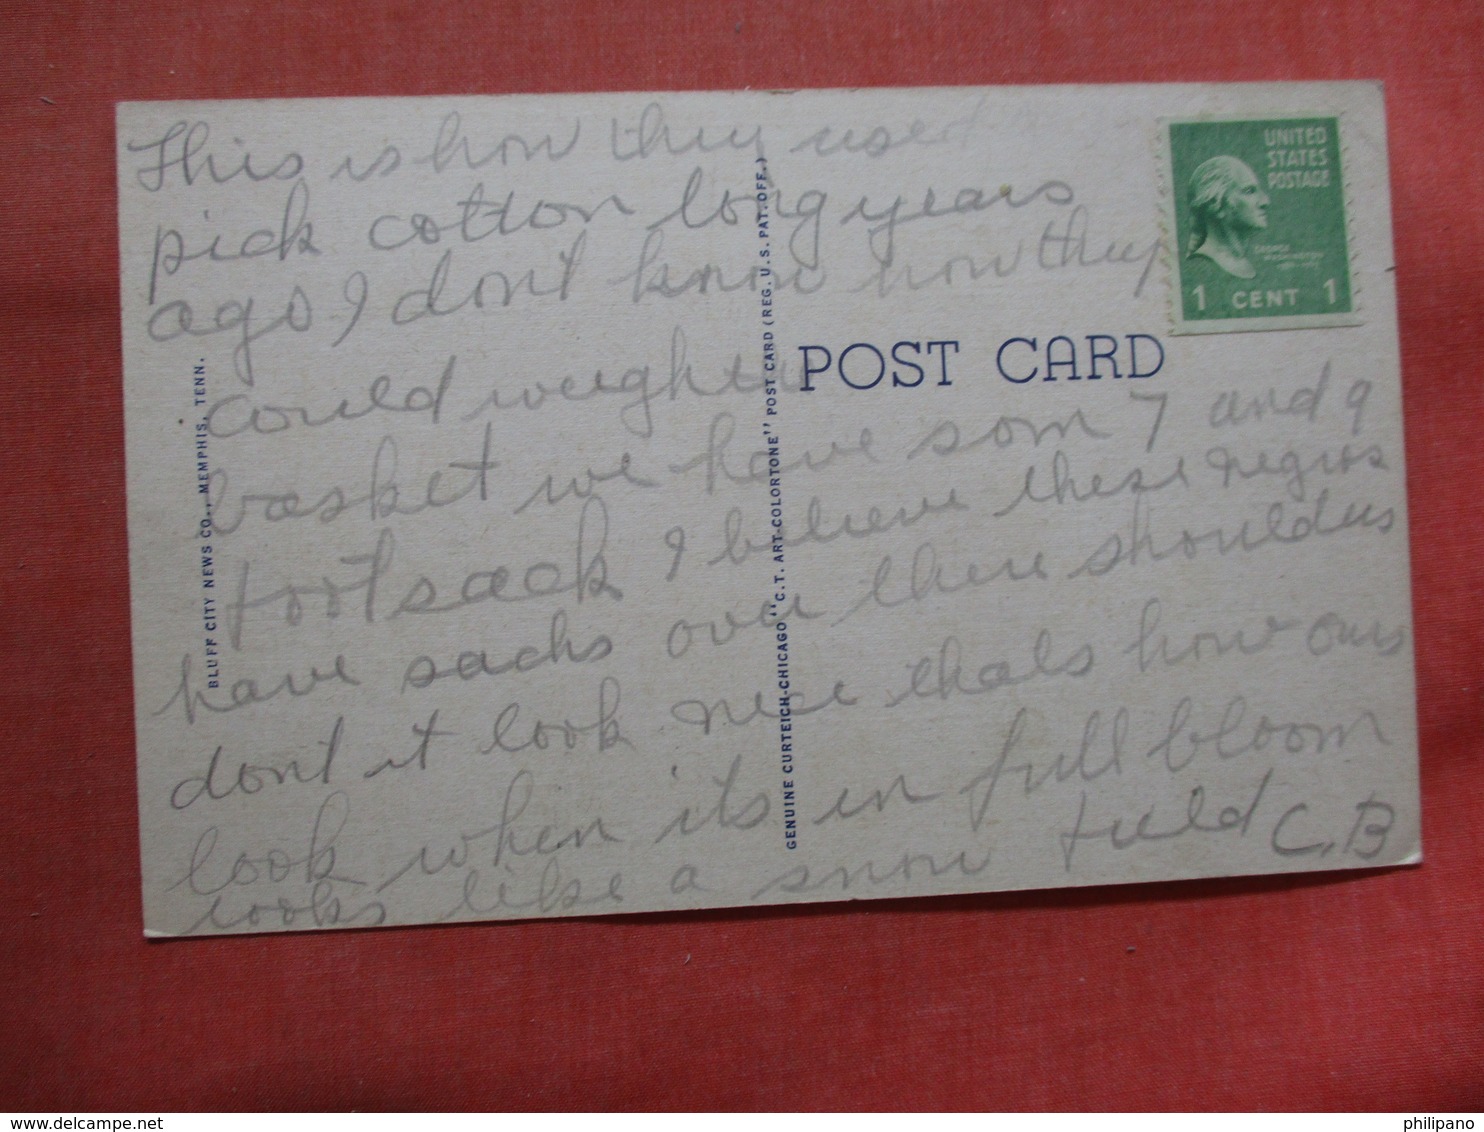 This is how they used
pick cotton long years
ago I don't know how they
could weigh in
basket we have som 7 and 9
foot sack I believe these negros
have sacks over there shoulders
dont it look nice thats how ours
look when its in full bloom
looks like a snow field C.B
UNITED
STATES
POSTAGE
GEORGE
WASHINGTON
1 CENT 1
POST CARD
BLUFF CITY NEWS CO., MEMPHIS, TENN.
GENUINE CURTEICH-CHICAGO "C.T. ART-COLORTONE" POST CARD (REG. U.S. PAT. OFF.)
www.delcampe.net
philipano